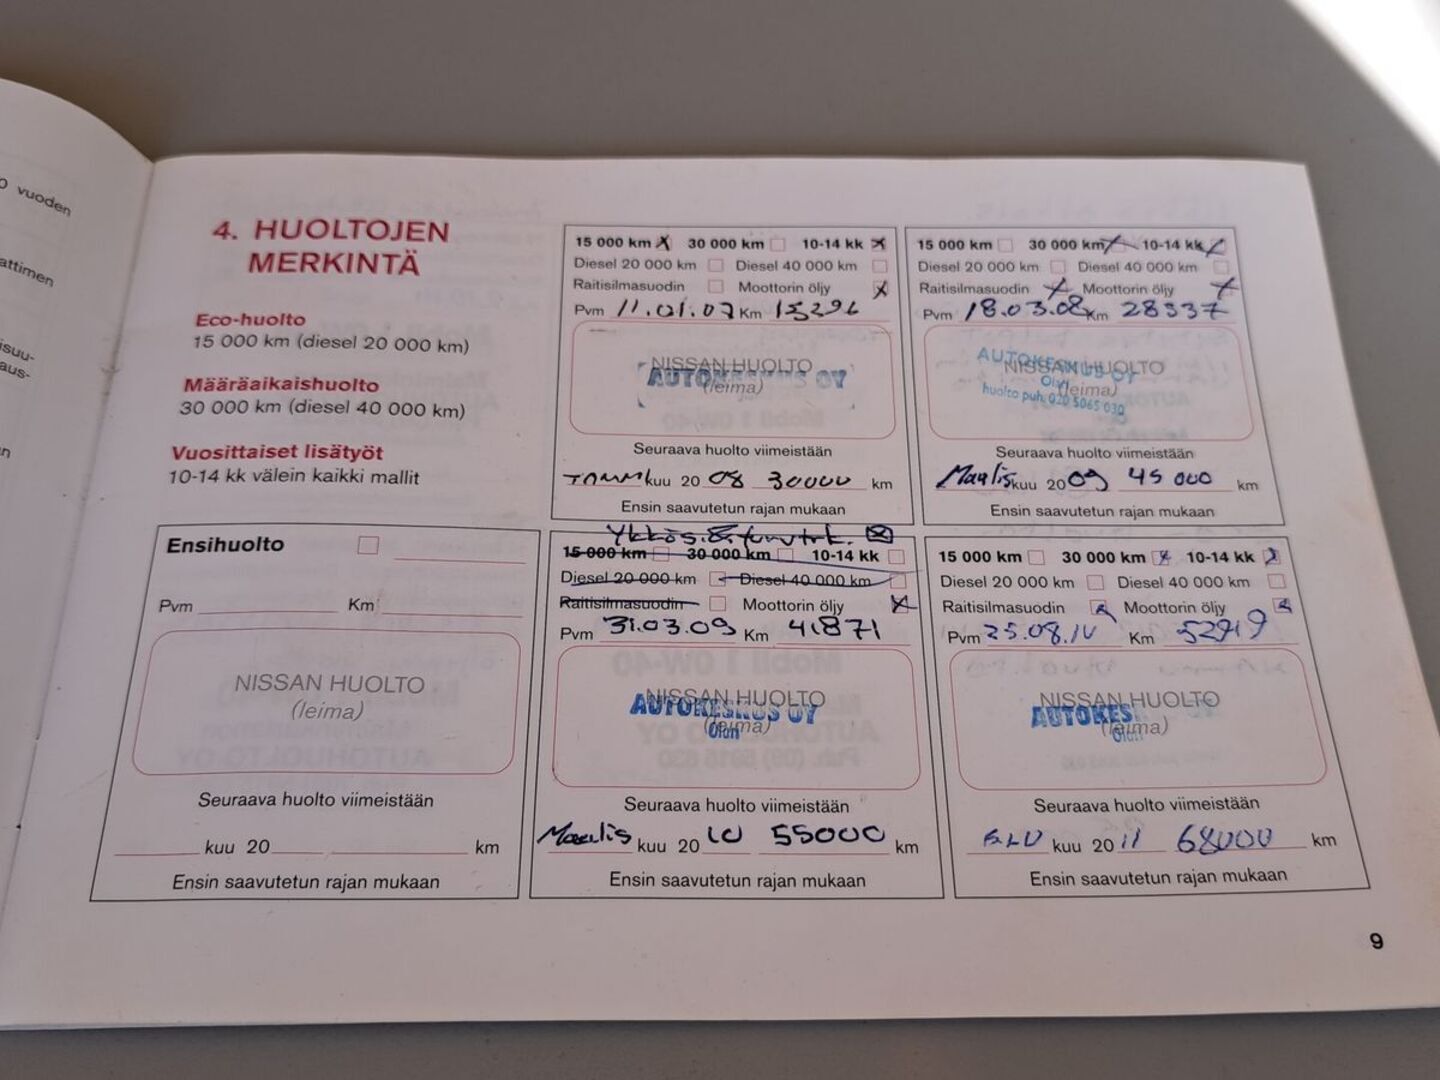 0 vuoden
attimen
isuu-
aus-
n
4. HUOLTOJEN
MERKINTÄ
Eco-huolto
15 000 km (diesel 20 000 km)
Määräaikaishuolto
30 000 km (diesel 40 000 km)
Vuosittaiset lisätyöt
10-14 kk välein kaikki mallit
15 000 km 30 000 km 10-14 kk
Diesel 20 000 km Diesel 40 000 km
Raitisilmasuodin Moottorin öljy
Pvm 11.01.07 Km 15296
NISSAN HUOLTO
AUTOKESKUS OY
(leima)
Seuraava huolto viimeistään
Tammikuu 20 08 30000 km
Ensin saavutetun rajan mukaan
15 000 km 30 000 km 10-14 kk
Diesel 20 000 km Diesel 40 000 km
Raitisilmasuodin Moottorin öljy
Pvm 18.03.08 Km 28337
AUTOKESKUS OY
NISSAN HUOLTO
(leima)
huolto puh. 020 5065 030
Seuraava huolto viimeistään
Maaliskuu 2009 45 000 km
Ensin saavutetun rajan mukaan
Ensihuolto
Pvm Km
NISSAN HUOLTO
(leima)
Seuraava huolto viimeistään
kuu 20 km
Ensin saavutetun rajan mukaan
15 000 km 30 000 km 10-14 kk
Diesel 20 000 km Diesel 40 000 km
Raitisilmasuodin Moottorin öljy
Pvm 31.03.09 Km 41871
NISSAN HUOLTO
AUTOKESKUS OY
(leima)
Seuraava huolto viimeistään
Maalis kuu 20 10 55000 km
Ensin saavutetun rajan mukaan
15 000 km 30 000 km 10-14 kk
Diesel 20 000 km Diesel 40 000 km
Raitisilmasuodin Moottorin öljy
Pvm 25.08.10 Km 52719
NISSAN HUOLTO
AUTOKES
(leima)
Seuraava huolto viimeistään
ELO kuu 20 11 68000 km
Ensin saavutetun rajan mukaan
9